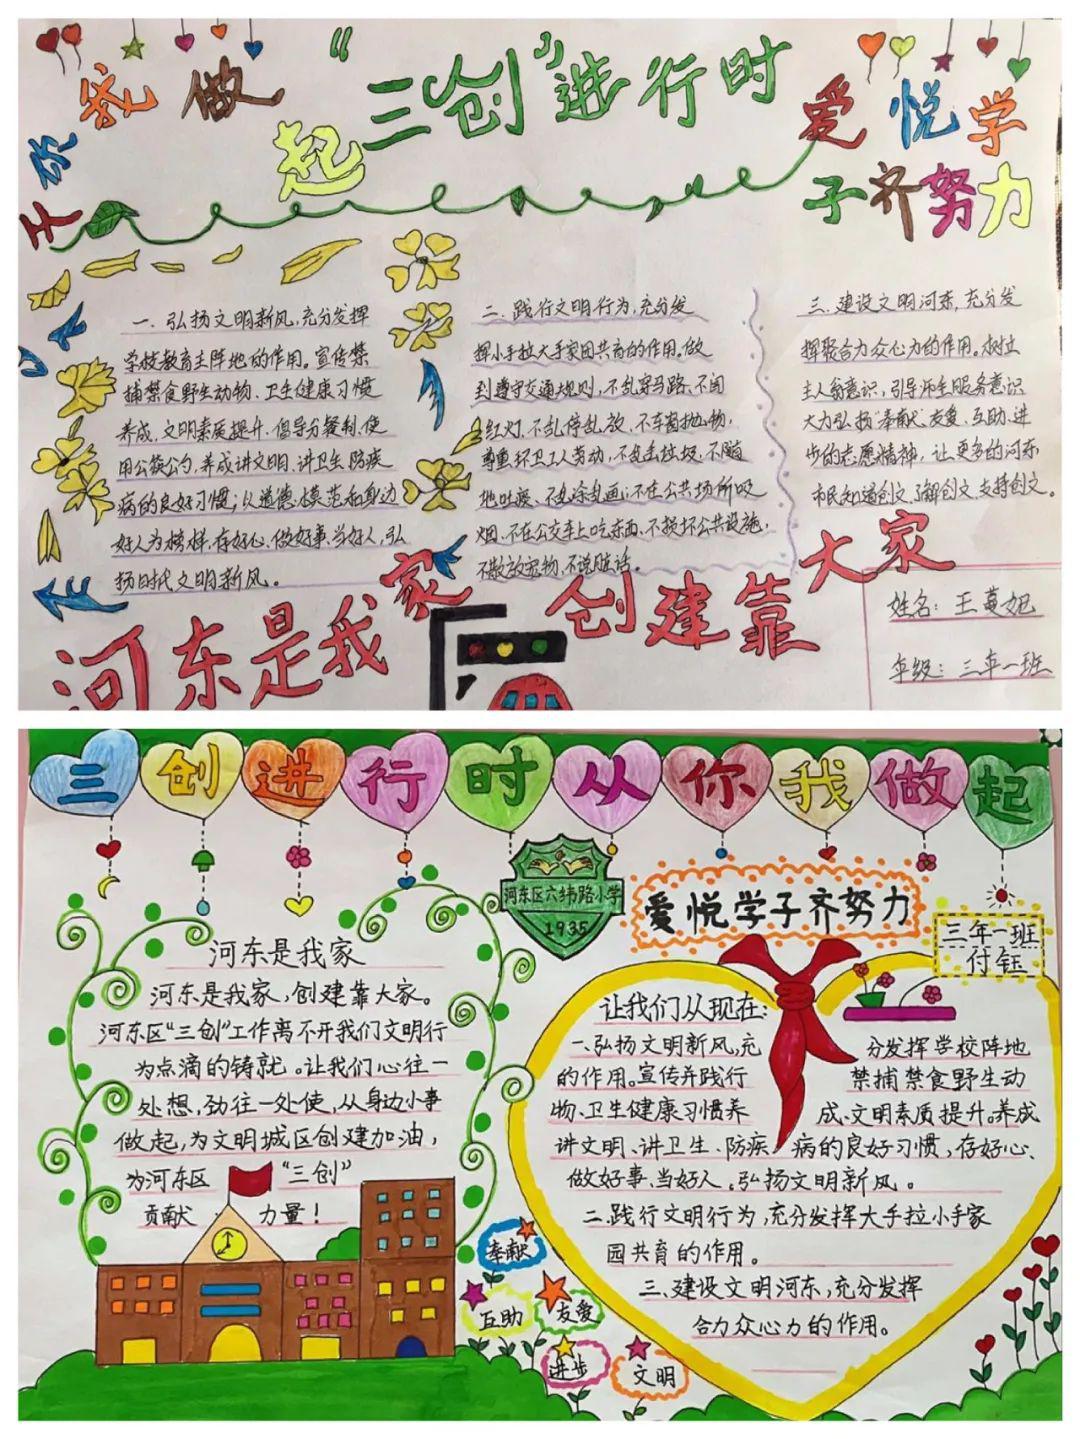 “三创”进行时
于你我做起
爱悦学
子齐努力
一、弘扬文明新风，充分发挥
学校教育主阵地的作用。宣传禁
捕禁食野生动物、卫生健康习惯
养成、文明素质提升、倡导分餐制、使
用公筷公勺，养成讲文明、讲卫生、防疾
病的良好习惯；从道德模范和身边
好人为榜样，存好心、做好事、当好人，弘
扬时代文明新风。
二、践行文明行为，充分发
挥小手拉大手家园共育的作用。做
到遵守交通规则，不乱穿马路、不闯
红灯、不乱停乱放、不车窗抛物，
尊重环卫工人劳动，不乱丢垃圾、不随
地吐痰、不乱涂乱画；不在公共场所吸
烟、不在公交车上吃东西、不损坏公共设施，
不散放宠物，不说脏话。
三、建设文明河东，充分发
挥聚合力众心力的作用。树立
主人翁意识，引导师生服务意识
大力弘扬“奉献、友爱、互助、进
步的志愿精神，让更多的河东
市民知道创文、了解创文、支持创文。
河东是我家 创建靠大家
姓名：王
年级：三年一班
三创进行时从你我做起
河东区六纬路小学
1935
爱悦学子齐努力
三年一班
付钰
河东是我家
河东是我家，创建靠大家。
河东区“三创”工作离不开我们文明行
为点滴的铸就。让我们心往一
处想，劲往一处使，从身边小事
做起，为文明城区创建加油，
为河东区 “三创”
贡献 力量！
让我们从现在：
一、弘扬文明新风，充 分发挥学校阵地
的作用。宣传并践行 禁捕禁食野生动
物、卫生健康习惯养 成、文明素质提升。养成
讲文明、讲卫生、防疾 病的良好习惯，存好心、
做好事、当好人。弘扬文明新风。
二、践行文明行为，充分发挥大手拉小手家
园共育的作用。
三、建设文明河东，充分发挥
合力众心力的作用。
奉献
互助
友爱
进步
文明